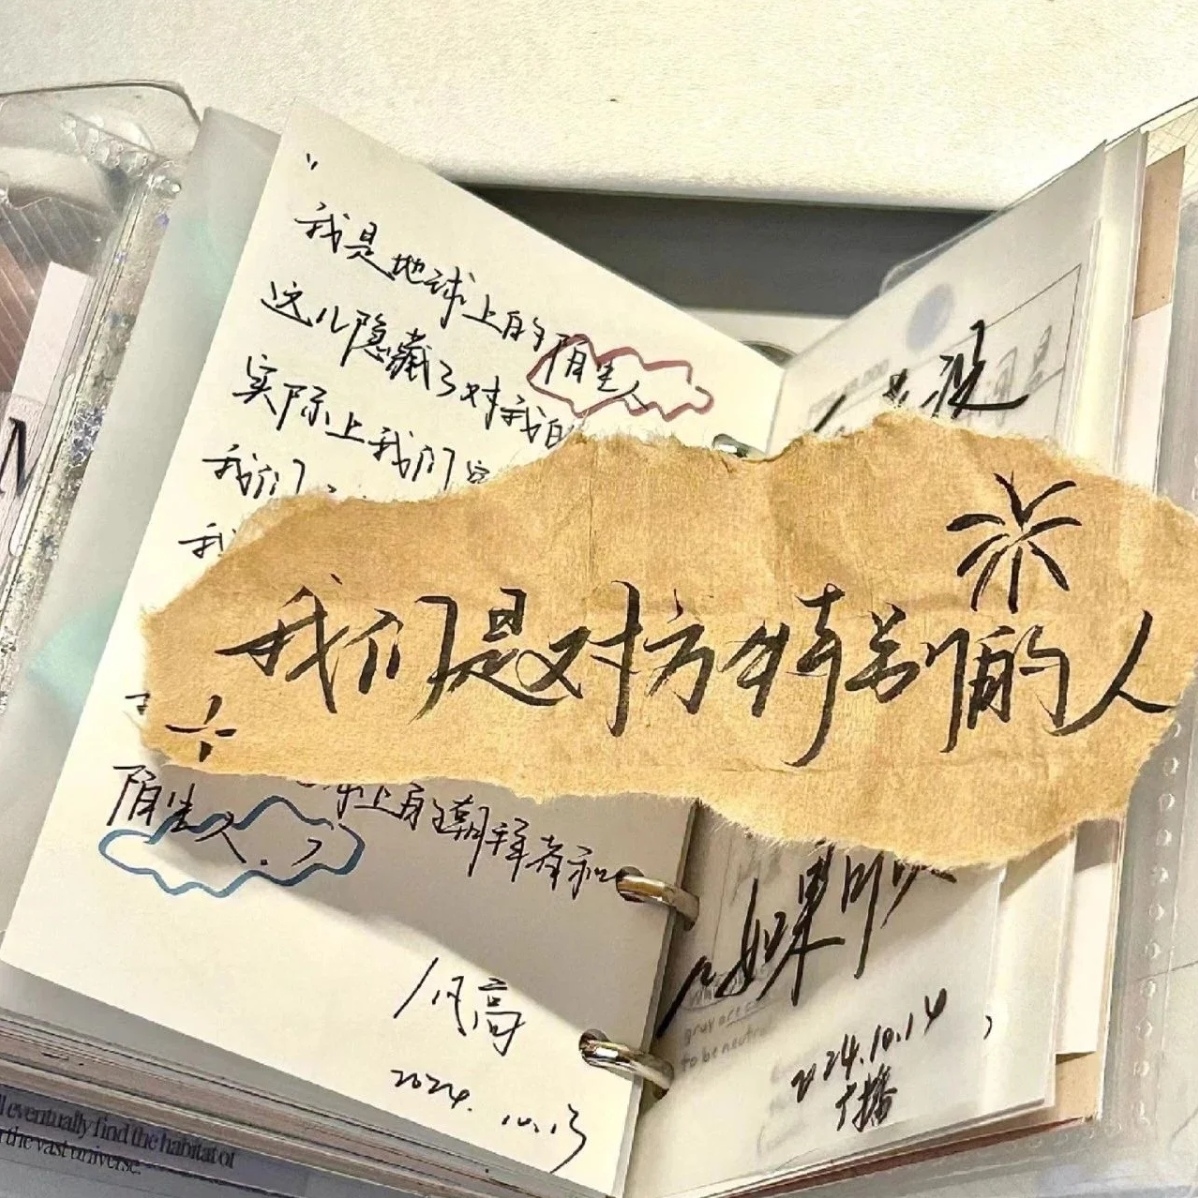 我是地球上的陌生人
这儿隐藏了对我
实际上我们
我们
我
我们是对方特别的人
上的朝拜者和
陌生人.”
梵高
2024.10.13
没
如果
2024.10.14
广播
gray are
to be neutral
l eventually find the habitat of
the vast universe.